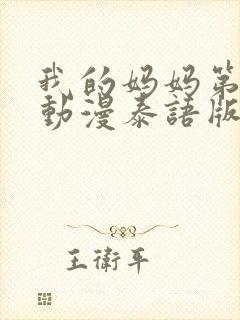 我的妈妈第
動漫泰語版
王衛平